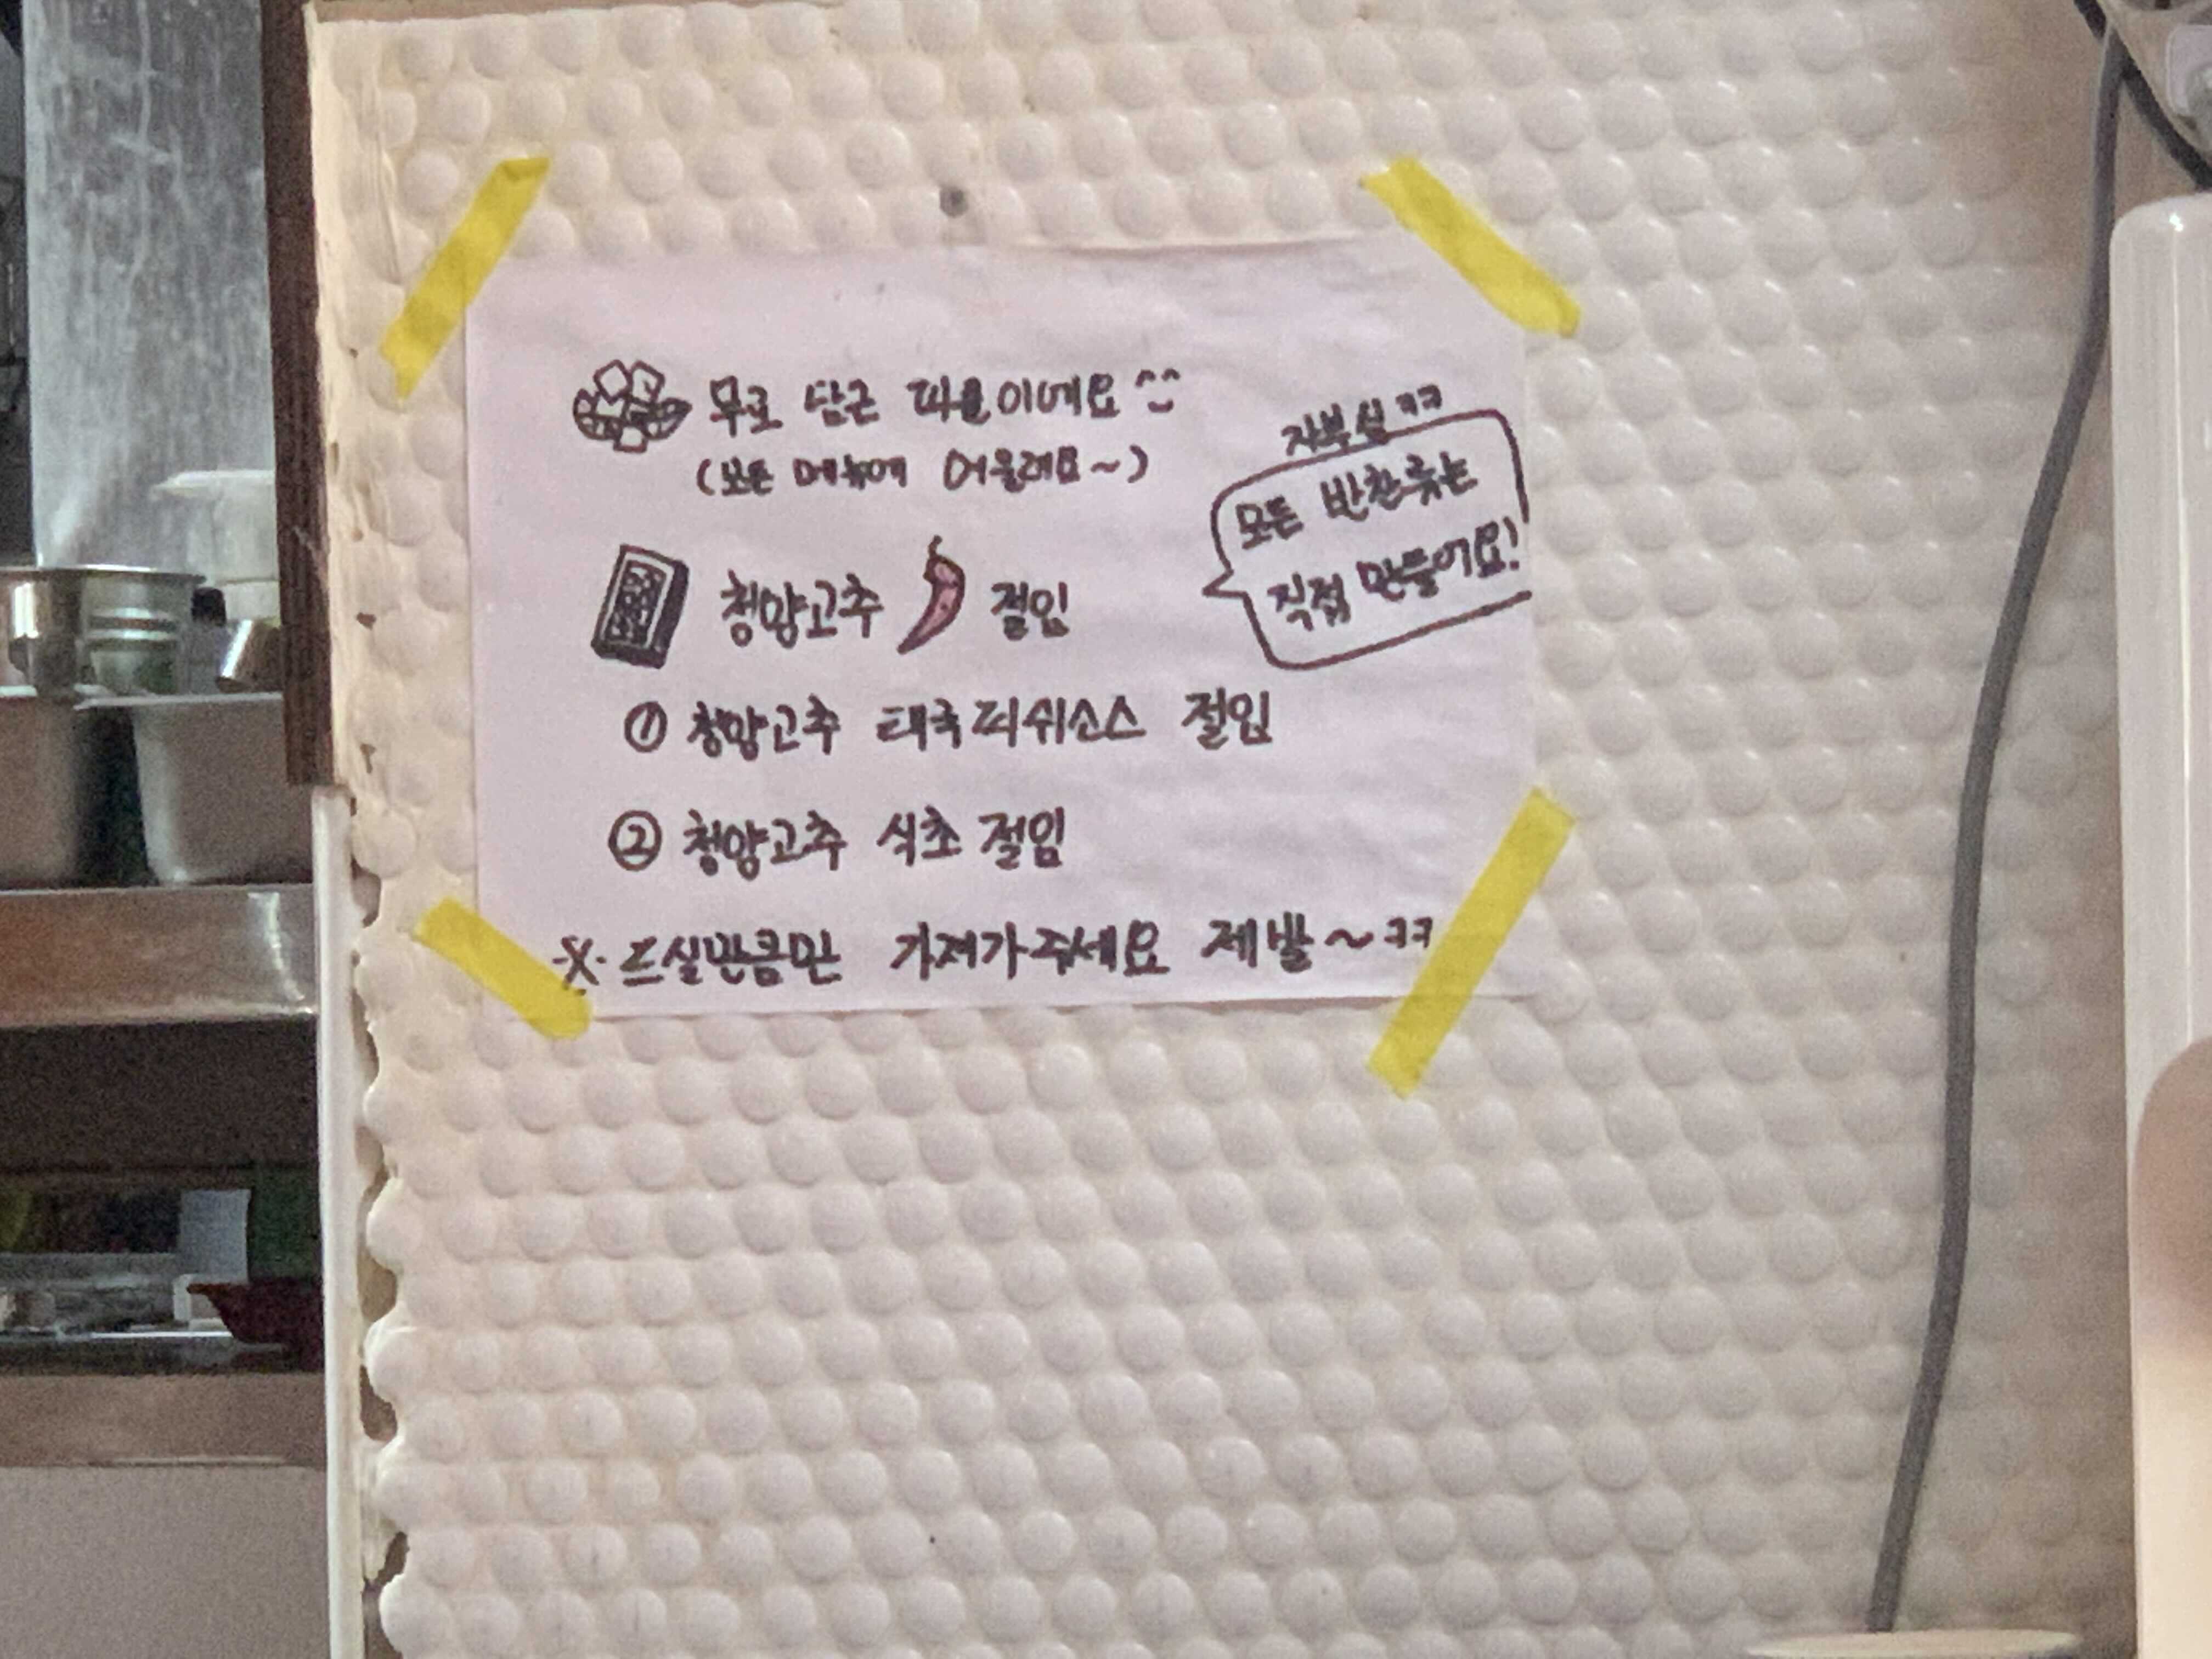 무로 담근 피클이에요 ^^
(모든 메뉴에 어울려요~)
자부심 ㅋㅋ
모든 반찬류는
직접 만들어요!
청양고추 절임
① 청양고추 태국피쉬소스 절임
② 청양고추 식초 절임
※ 드실만큼만 가져가주세요 제발~ㅋㅋ